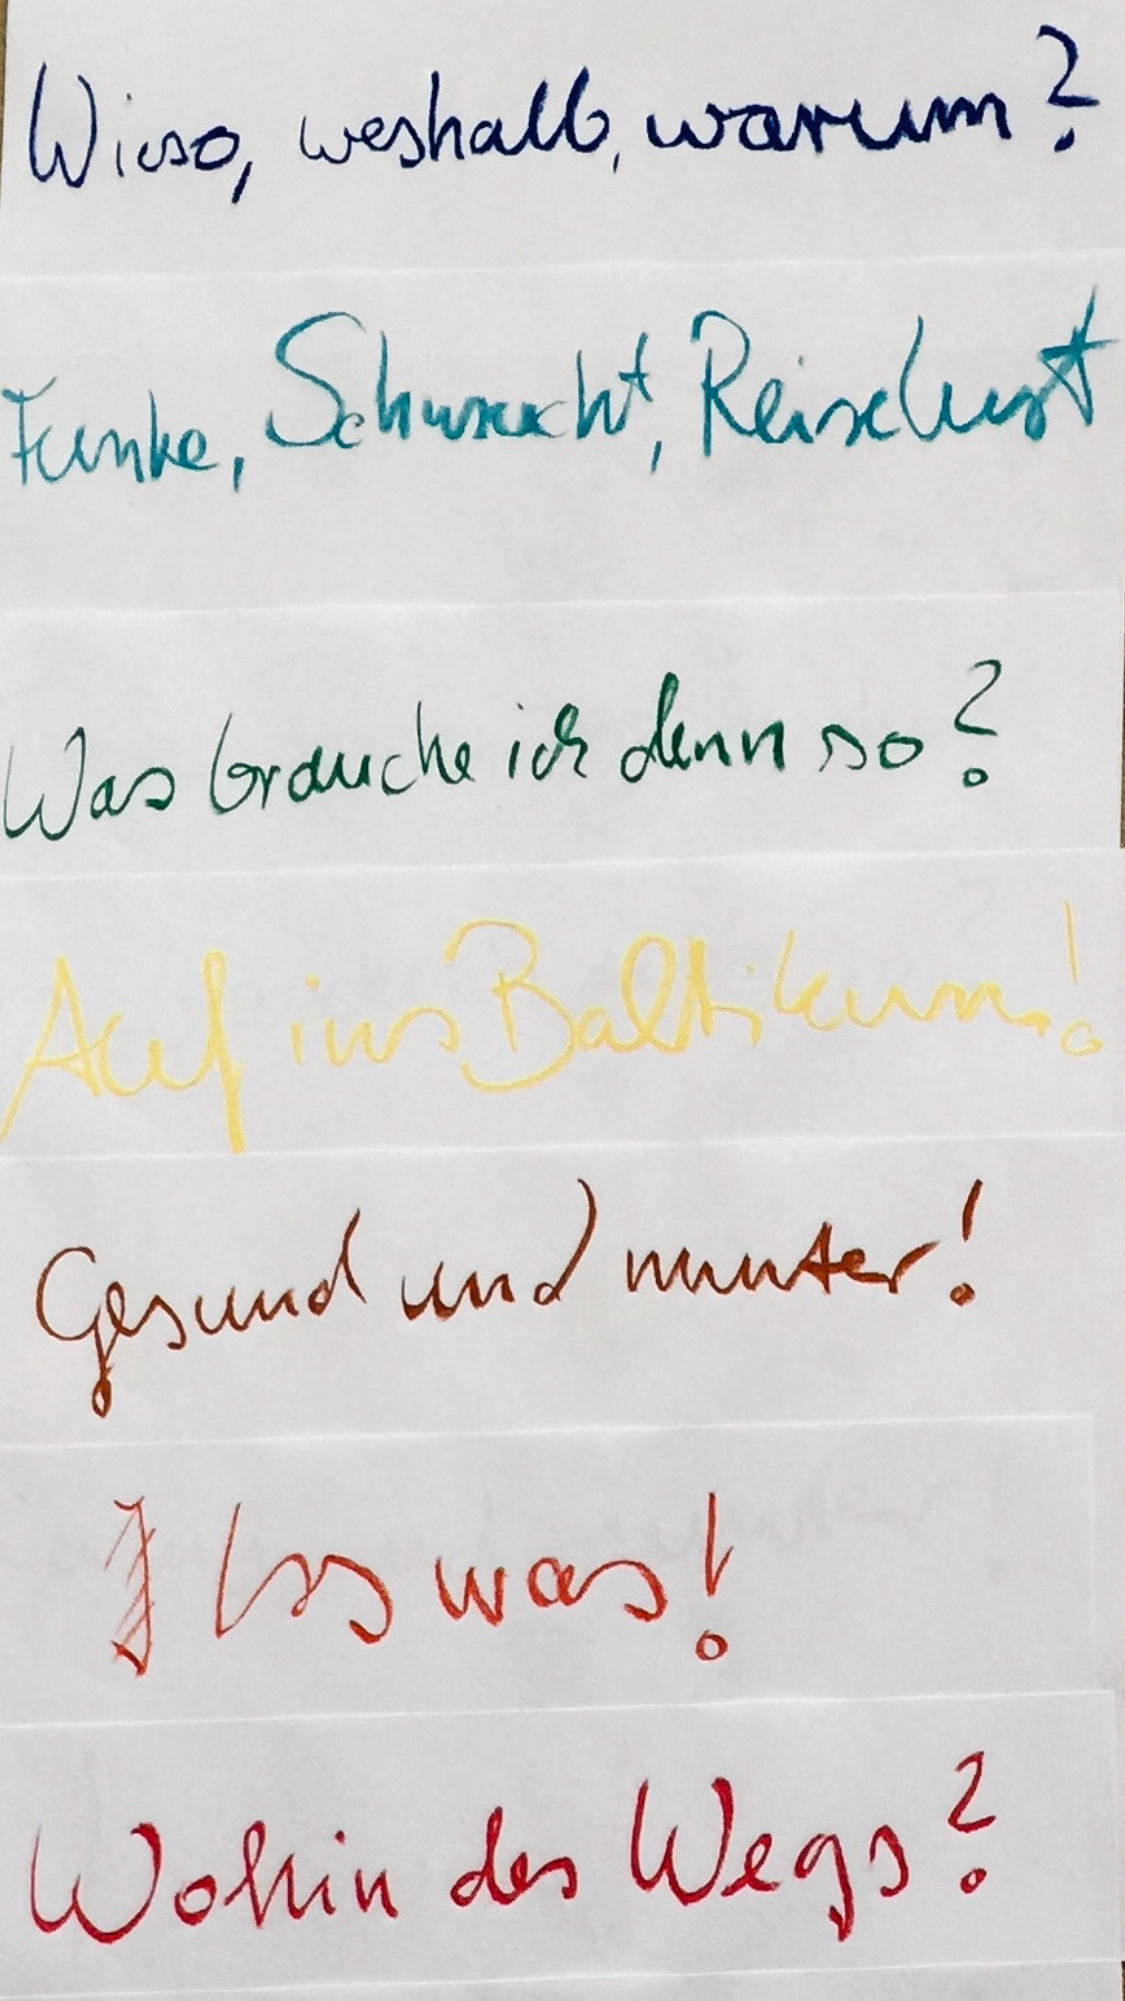 Wieso, weshalb, warum?
Funke, Sehnsucht, Reiselust
Was brauche ich denn so?
Auf ins Baltikum!
Gesund und munter!
Iss was!
Wohin des Wegs?